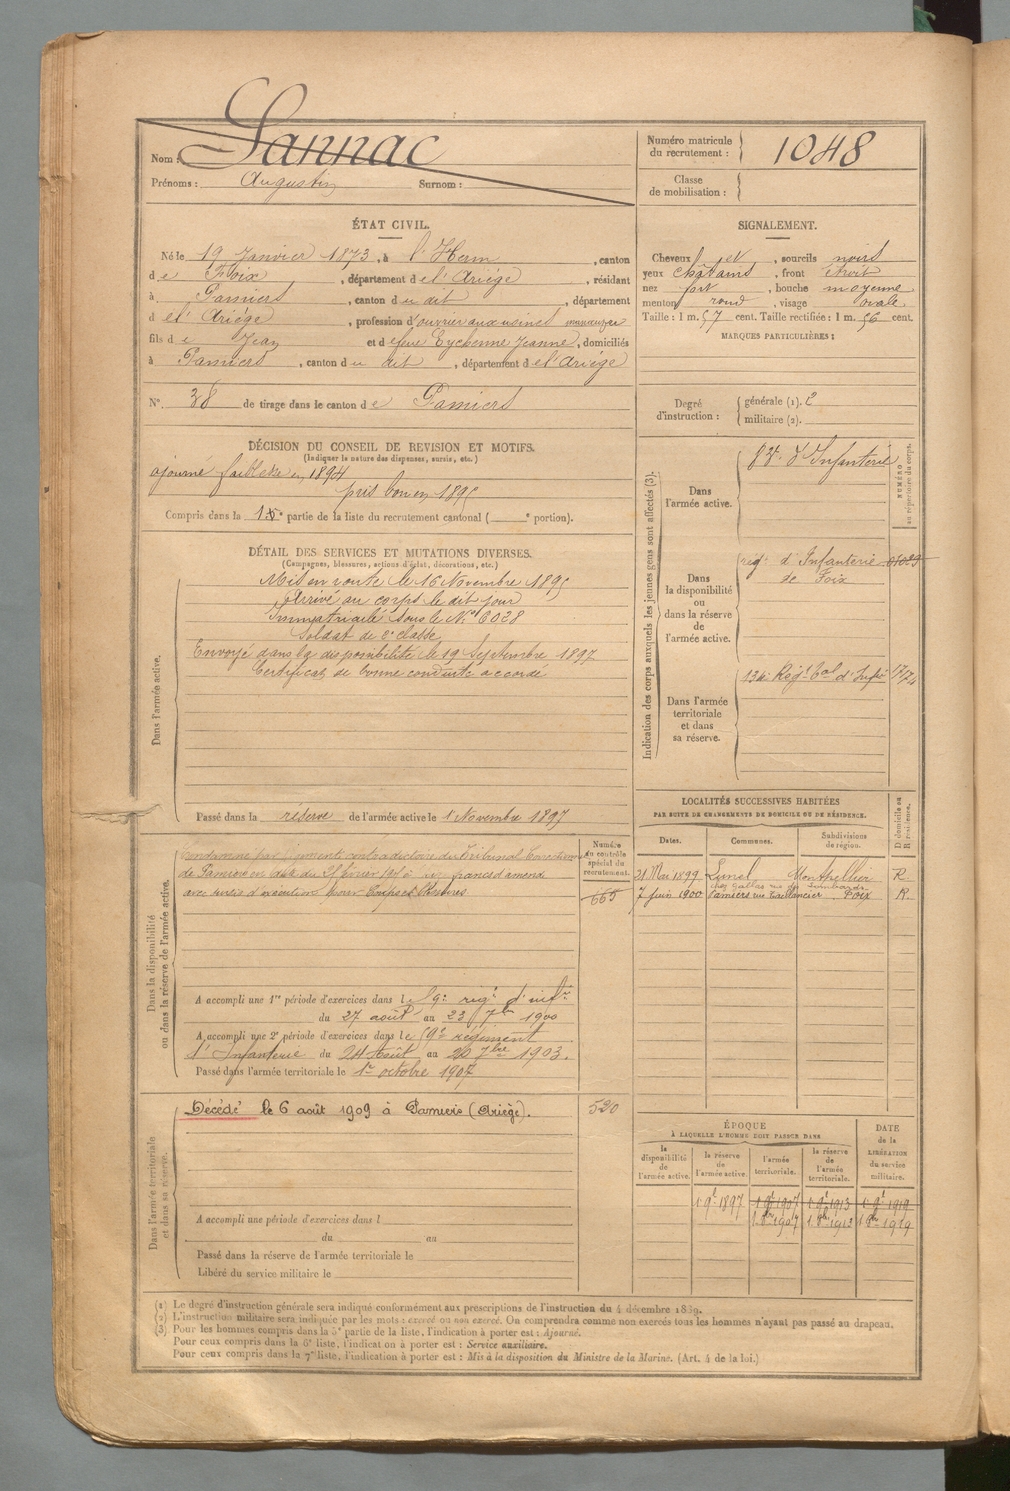 Nom : Lannac
Prénoms : Augustin Surnom :
Numéro matricule du recrutement : 1048
Classe de mobilisation :
ÉTAT CIVIL.
Né le 19 Janvier 1873, à l'Herm, canton
de Foix, département de l'Ariège, résidant
à Pamiers, canton du dit, département
de l'Ariège, profession d'ouvrier aux usines
fils de Jean et de feue Eychenne Jeanne, domiciliés
à Pamiers, canton du dit, département de l'Ariège
N° 38 de tirage dans le canton de Pamiers
SIGNALEMENT.
Cheveux et, sourcils noirs
yeux châtains, front étroit
nez fort, bouche moyenne
menton rond, visage ovale
Taille : 1 m. 57 cent. Taille rectifiée : 1 m. 56 cent.
MARQUES PARTICULIÈRES :
Degré d'instruction : générale (1). 2
militaire (2).
DÉCISION DU CONSEIL DE REVISION ET MOTIFS.
(Indiquer la nature des dispenses, sursis, etc.)
ajourné faiblesse en 1894
pris bon en 1895
Compris dans la 1e partie de la liste du recrutement cantonal ( e portion).
DÉTAIL DES SERVICES ET MUTATIONS DIVERSES.
(Campagnes, blessures, actions d'éclat, décorations, etc.)
Dans l'armée active.
Mis en route le 16 Novembre 1895
Arrivé au corps le dit jour
Immatriculé sous le N° 6028
Soldat de 2e classe
Envoyé dans la disponibilité le 19 Septembre 1897
Certificat de bonne conduite accordé
Passé dans la réserve de l'armée active le 1 Novembre 1897
Indication des corps auxquels les jeunes gens sont affectés (3).
NUMÉRO au répertoire du corps.
Dans l'armée active.
d'Infanterie
Dans la disponibilité ou dans la réserve de l'armée active.
régt d'Infanterie 01029
de Foix
Dans l'armée territoriale et dans sa réserve.
134e Régt Tal d'Infie
LOCALITÉS SUCCESSIVES HABITÉES
PAR SUITE DE CHANGEMENTS DE DOMICILE OU DE RÉSIDENCE.
Dates. Communes. Subdivisions de région. D domicile ou R résidence.
21 Mai 1899 Lunel Montpellier R
7 Juin 1900 Pamiers Foix R
Dans la disponibilité ou dans la réserve de l'armée active.
Numéro au contrôle spécial du recrutement.
665
Condamné par jugement contradictoire du Tribunal Correctionnel
de Pamiers en date du
A accompli une 1re période d'exercices dans le 59e régt d'infie
du 27 août au 23 7bre 1900
A accompli une 2e période d'exercices dans le 59e régiment
d'Infanterie du 24 Août au 20 7bre 1903.
Passé dans l'armée territoriale le 1er octobre 1907
Dans l'armée territoriale et dans sa réserve.
Décédé le 6 août 1909 à Pamiers (Ariège). 520
A accompli une période d'exercices dans l
du au
Passé dans la réserve de l'armée territoriale le
Libéré du service militaire le
ÉPOQUE
À LAQUELLE L'HOMME DOIT PASSER DANS
DATE de la LIBÉRATION du service militaire.
la disponibilité de l'armée active. la réserve de l'armée active. l'armée territoriale. la réserve de l'armée territoriale.
1 9e 1897 1 9e 1907 1 9e 1913 1 9e 1919
1 8bre 1907 1 8bre 1913 1 8bre 1919
(1) Le degré d'instruction générale sera indiqué conformément aux prescriptions de l'instruction du 4 décembre 1889.
(2) L'instruction militaire sera indiquée par les mots : exercé ou non exercé. On comprendra comme non exercés tous les hommes n'ayant pas passé au drapeau.
(3) Pour les hommes compris dans la 5e partie de la liste, l'indication à porter est : Ajourné.
Pour ceux compris dans la 6e liste, l'indication à porter est : Service auxiliaire.
Pour ceux compris dans la 7e liste, l'indication à porter est : Mis à la disposition du Ministre de la Marine. (Art. 4 de la loi.)